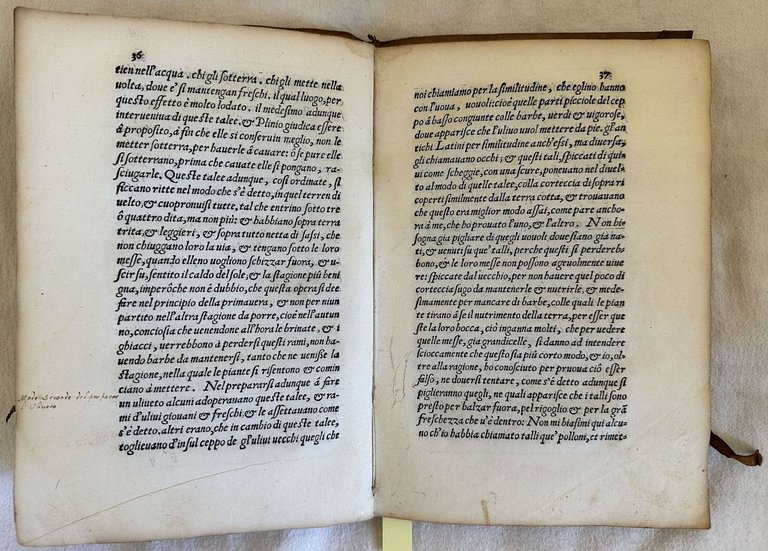 36
tien nell'acqua. chi gli sotterra. chi gli mette nella
uolta, doue e' si mantengan freschi. il qual luogo, per
questo effetto è molto lodato. il medesimo adunque
interueniua di queste talee. & Plinio giudica essere
à proposito, à fin che elle si conseruin meglio, non le
metter sotterra, per hauerle à cauare: ò se pure elle
si sotterrano, prima che cauate elle si pongano, ra-
sciugarle. Queste talee adunque, così ordinate, si
ficcano ritte nel modo che s'è detto, in quel terren di
uelto, & cuopronuisi tutte. tal che entrino sotto tre
ò quattro dita, ma non più: & habbiano sopra terra
trita, & leggieri, & sopra tutto netta di sassi, che
non chiuggano loro la uia, & tengano sotto le loro
messe, quando elleno uogliono schizzar fuora, & u-
scir su, sentito il caldo del sole, & la stagione più beni
gna, imperôche non è dubbio, che questa opera si dee
fare nel principio della primauera, & non per niun
partito nell'altra stagione da porre, cioè nell'autun
no, conciosia che uenendone all'hora le brinate, & i
ghiacci, uerrebbono à perdersi questi rami, non ha-
uendo barbe da mantenersi, tanto che ne uenisse la
stagione, nella quale le piante si risentono & comin
ciano à mettere. Nel prepararsi adunque à far
un uliueto alcuni adoperauano queste talee, & ra-
mi d'uliui giouani & freschi, & le assettauano come
s'è detto. altri erano, che in cambio di queste talee,
toglieuano d'in sul ceppo de gl'uliui uecchi quegli che
37
noi chiamiamo per la similitudine, che eglino hanno
con l'uoua, uouoli: cioè quelle parti picciole del cep
po à basso congiunte colle barbe, uerdi & uigorose,
doue apparisce che l'uliuo uuol mettere da pie. gl'an
tichi Latini per similitudine anch'essi, ma diuersa,
gli chiamauano occhi; & questi tali, spiccati di qui-
ui come scheggie, con una scure, poneuano nel diuel-
to al modo di quelle talee, colla corteccia di sopra ri
coperti similmente dalla terra cotta, & trouauano
che questo era miglior modo assai, come pare ancho-
ra à me, che ho prouato l'uno, & l'altro. Non bi-
sogna già pigliare di quegli uouoli doue siano già na-
ti, & uenuti su que' talli, perche questi si perdereb-
bono, & le loro messe non possono ageuolmente uiue
re: spiccate dal uecchio, per non hauere quel poco di
corteccia sugo da mantenerle & nutrirle, & mede-
simamente per mancare di barbe, colle quali le pian
te tirano à se il nutrimento della terra, per esser que
ste la loro bocca. ciò inganna molti, che per uedere
quelle messe, già grandicelle, si danno ad intendere
scioccamente che questo sia più corto modo, & io, ol-
tre alla ragione, ho conosciuto per pruoua ciò esser
falso, ne douersi tentare, come s'è detto adunque si
piglieranno quegli, ne quali apparisce che i talli sono
presto per balzar fuora, pel rigoglio & per la grã
freschezza che u'è dentro: Non mi biasimi qui alcu-
no ch'io habbia chiamato talli que' polloni, et rimet-